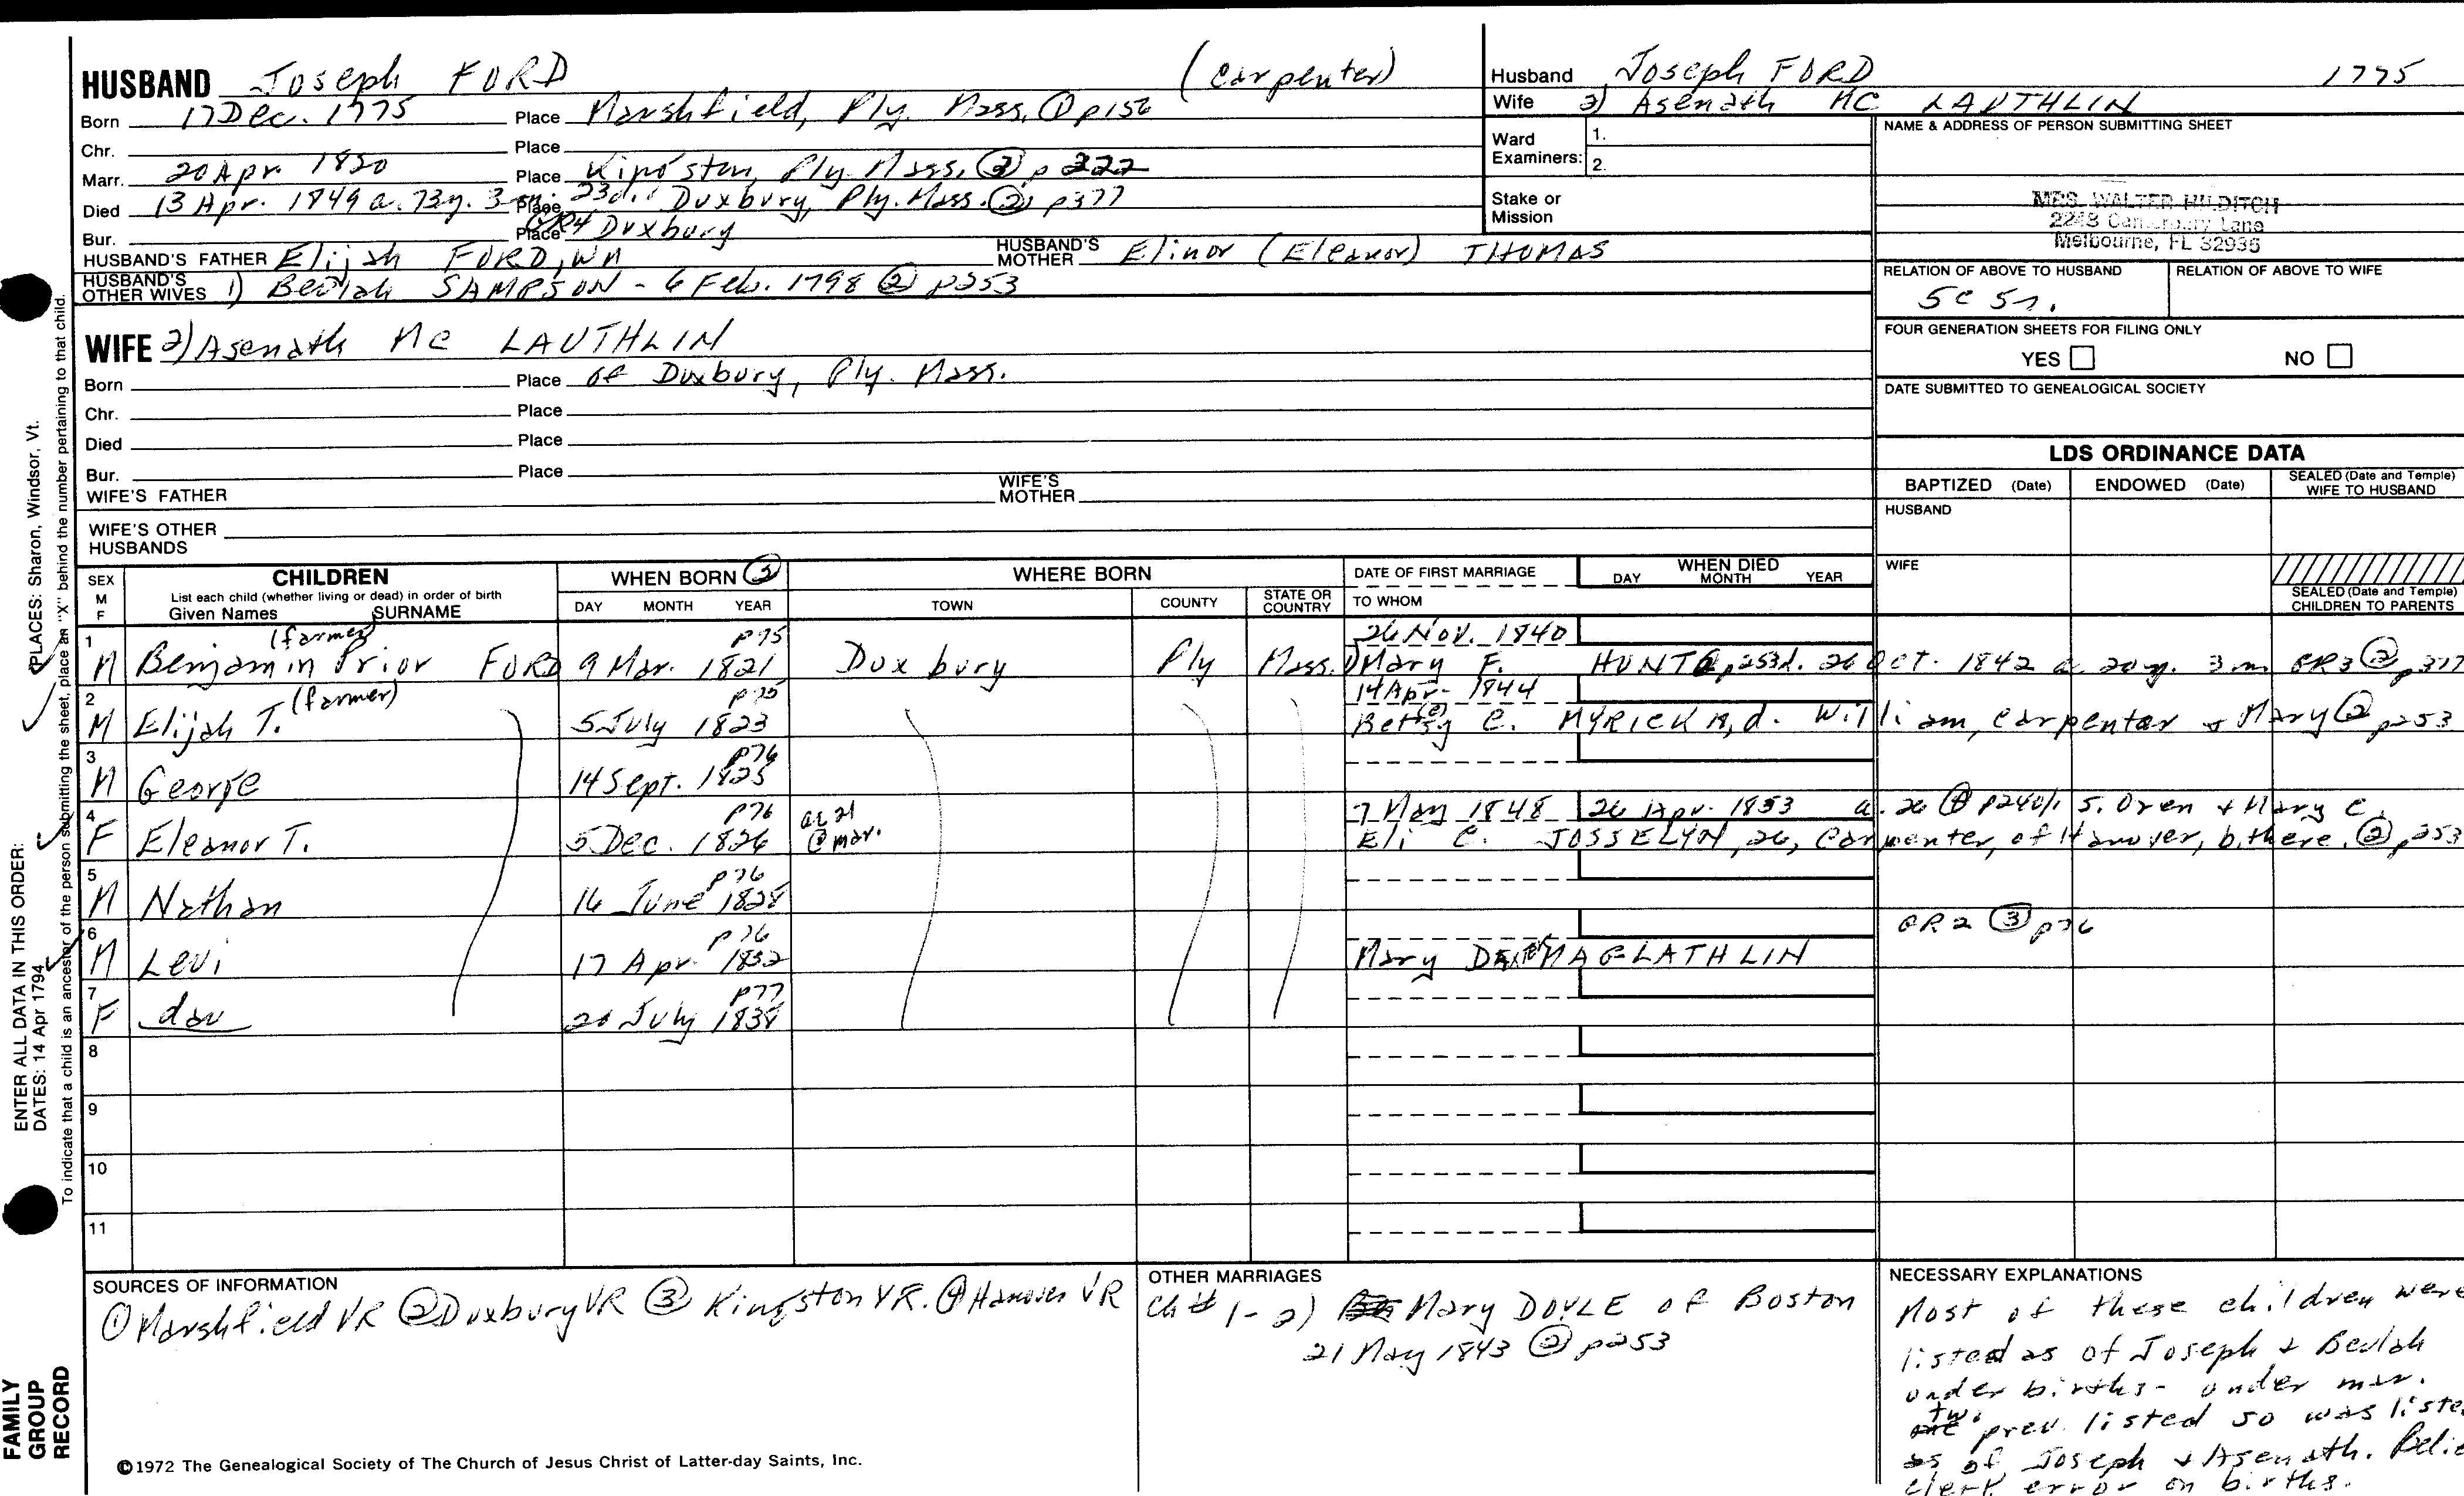 HUSBAND Joseph FORD (carpenter)
Born 17 Dec. 1775 Place Marshfield, Ply. Mass. ① p156
Chr. Place
Marr. 20 Apr. 1820 Place Kingston, Ply. Mass. ③ p 222
Died 13 Apr. 1849 a. 73y. 3m. 23d. Place Duxbury, Ply. Mass. ② p377
Bur. Place Duxbury
HUSBAND'S FATHER Elijah FORD, HUSBAND'S MOTHER Elinor (Eleanor) THOMAS
HUSBAND'S OTHER WIVES 1) Beulah SAMPSON - 6 Feb. 1798 ② p253
WIFE 2) Asenath Mc LAUTHLIN
Born Place of Duxbury, Ply. Mass.
Chr. Place
Died Place
Bur. Place
WIFE'S FATHER WIFE'S MOTHER
WIFE'S OTHER HUSBANDS
Husband Joseph FORD 1775
Wife 2) Asenath Mc LAUTHLIN
Ward Examiners: 1.
2.
Stake or Mission
NAME & ADDRESS OF PERSON SUBMITTING SHEET
MRS. WALTER HILDITCH
2248 Lane
Melbourne, FL 32935
RELATION OF ABOVE TO HUSBAND RELATION OF ABOVE TO WIFE
5c 5r.
FOUR GENERATION SHEETS FOR FILING ONLY
YES NO
DATE SUBMITTED TO GENEALOGICAL SOCIETY
LDS ORDINANCE DATA
BAPTIZED (Date) ENDOWED (Date) SEALED (Date and Temple) WIFE TO HUSBAND
HUSBAND
WIFE
SEALED (Date and Temple) CHILDREN TO PARENTS
SEX M F
CHILDREN
List each child (whether living or dead) in order of birth
Given Names SURNAME
WHEN BORN ③
DAY MONTH YEAR
WHERE BORN
TOWN COUNTY STATE OR COUNTRY
DATE OF FIRST MARRIAGE
TO WHOM
WHEN DIED
DAY MONTH YEAR
1 (farmer) p75 26 Nov. 1840
M Benjamin Prior FORD 9 Mar. 1821 Duxbury Ply Mass. 1) Mary F. HUNT ② p253 d. 26 Oct. 1842 a. 20y. 3m CR3 ② p377
2 (farmer) p75 14 Apr. 1844
M Elijah T. 5 July 1823 Betsy (e) C. MYRICK, d. William, carpenter & Mary ② p253
3 p76
M George 14 Sept. 1825
4 p76 ae 21 @ mar. 7 May 1848 26 Apr. 1853 a. 26 ④ p240, s. Oren & Mary C.
F Eleanor T. 5 Dec. 1826 Eli C. JOSSELYN, 26, Carpenter, of Hanover, b. there. ② p253
5 p76
M Nathan 16 June 1828
6 p76 CR2 ③ p76
M Levi 17 Apr. 1832 Mary MAGLATHLIN
7 p77
F dau 20 July 1838
8
9
10
11
SOURCES OF INFORMATION
① Marshfield VR ② Duxbury VR ③ Kingston VR. ④ Hanover VR
OTHER MARRIAGES
Ch # 1 - 2) Mary DOYLE of Boston
21 May 1843 ② p253
NECESSARY EXPLANATIONS
Most of these children were
listed as of Joseph & Beulah
under births - under mar.
two prev. listed so was liste
as of Joseph & Asenath. Belie
clerk error on births.
©1972 The Genealogical Society of The Church of Jesus Christ of Latter-day Saints, Inc.
FAMILY GROUP RECORD
ENTER ALL DATA IN THIS ORDER:
DATES: 14 Apr 1794
PLACES: Sharon, Windsor, Vt.
To indicate that a child is an ancestor of the person submitting the sheet, place an "X" behind the number pertaining to that child.